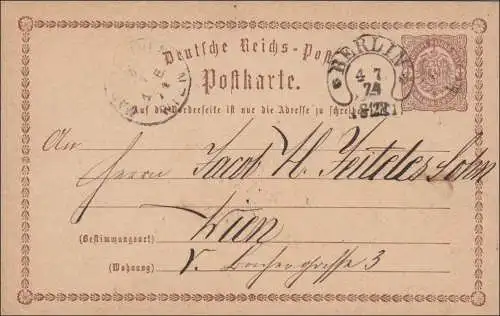 Deutsche Reichs-Post
Postkarte.
BERLIN
4 7
74
Auf die Vorderseite ist nur die Adresse zu schreiben.
An
Herrn Jacob H. Jeiteles Sohn
Wien
(Bestimmungsort)
(Wohnung)
V. 3